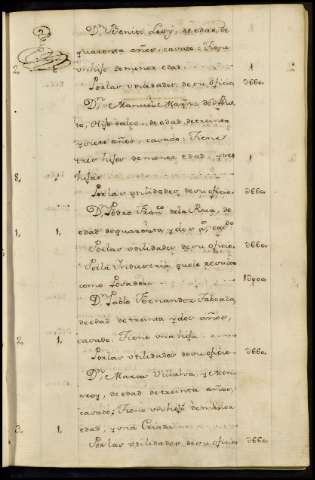 D.n Benito Leys, de edad, de
quarenta años, casado: Tiene
2. un hijo de menor edad 1
Por las utilidades de su oficio U660
D.n Manuel
to, Hijo dalgo, de edad de treinta
y años, casado: Tiene
tres hijos de menor edad, y tres
8, hijas
Por las utilidades de su oficio U660
D.n Pedro Fran.co de la Rua, de
1, 1, edad de quarenta y as, ca.do
Por las utilidades de su oficio U660
Por la Yndustria que le resulta
como
D.n Pablo Fernandez Taboada,
de edad de treinta y dos años,
2. 1, casado: Tiene una hija
Por las utilidades de su oficio U660
D.n Maria Villalva, y
de edad de treinta años,
casado; Tiene un hijo de menor
3. 1. edad, y una Criada
Por las utilidades de su oficio U660